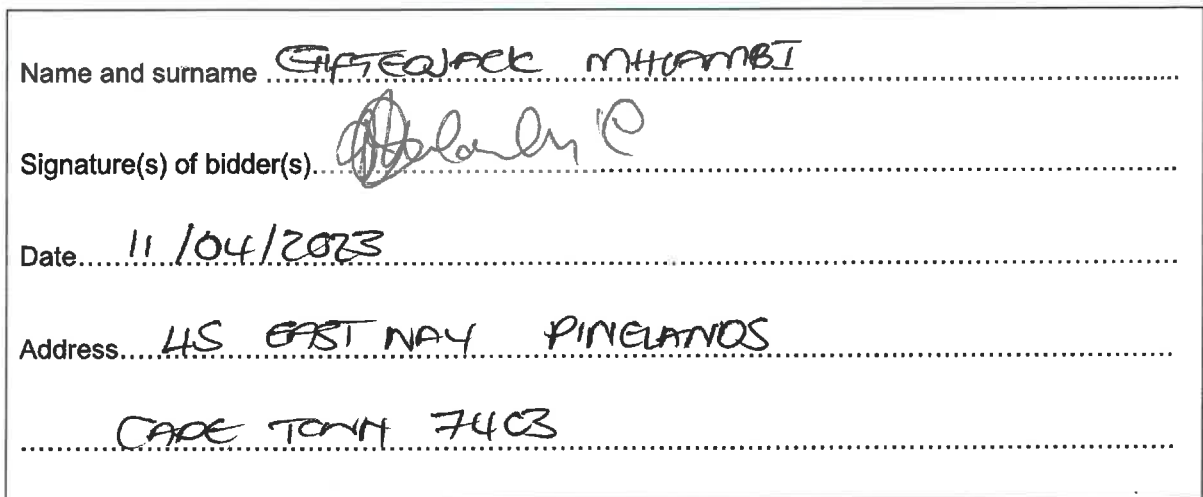 Name and surname GIFTEDJACK MHLAMBI
Signature(s) of bidder(s)
Date 11/04/2023
Address 45 EAST WAY PINELANDS
CAPE TOWN 7405